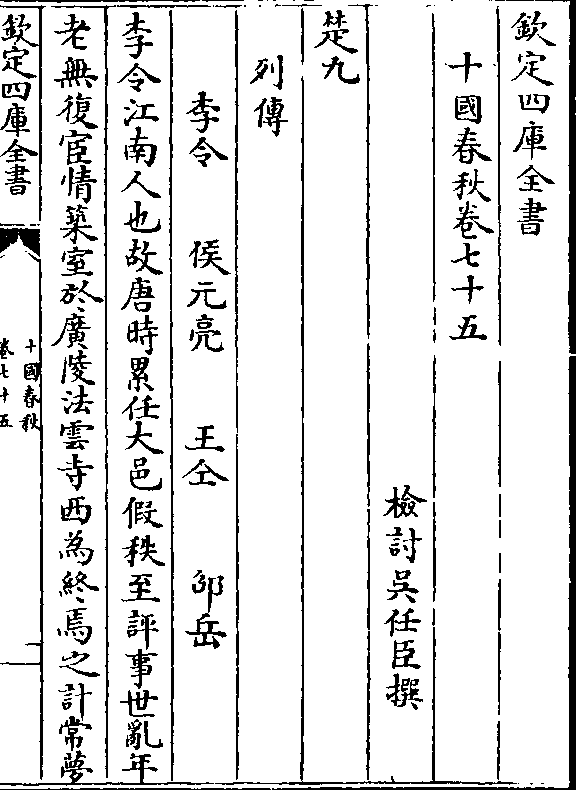 欽定四庫全書
十國春秋卷七十五
檢討吳任臣撰
楚九
列傳
李令 侯元亮 王仝 邵岳
李令江南人也故唐時累任大邑假秩至評事世亂年
老無復宦情築室於廣陵法雲寺西為終焉之計常夢
欽定四庫全書
十國春秋
卷七十五
一